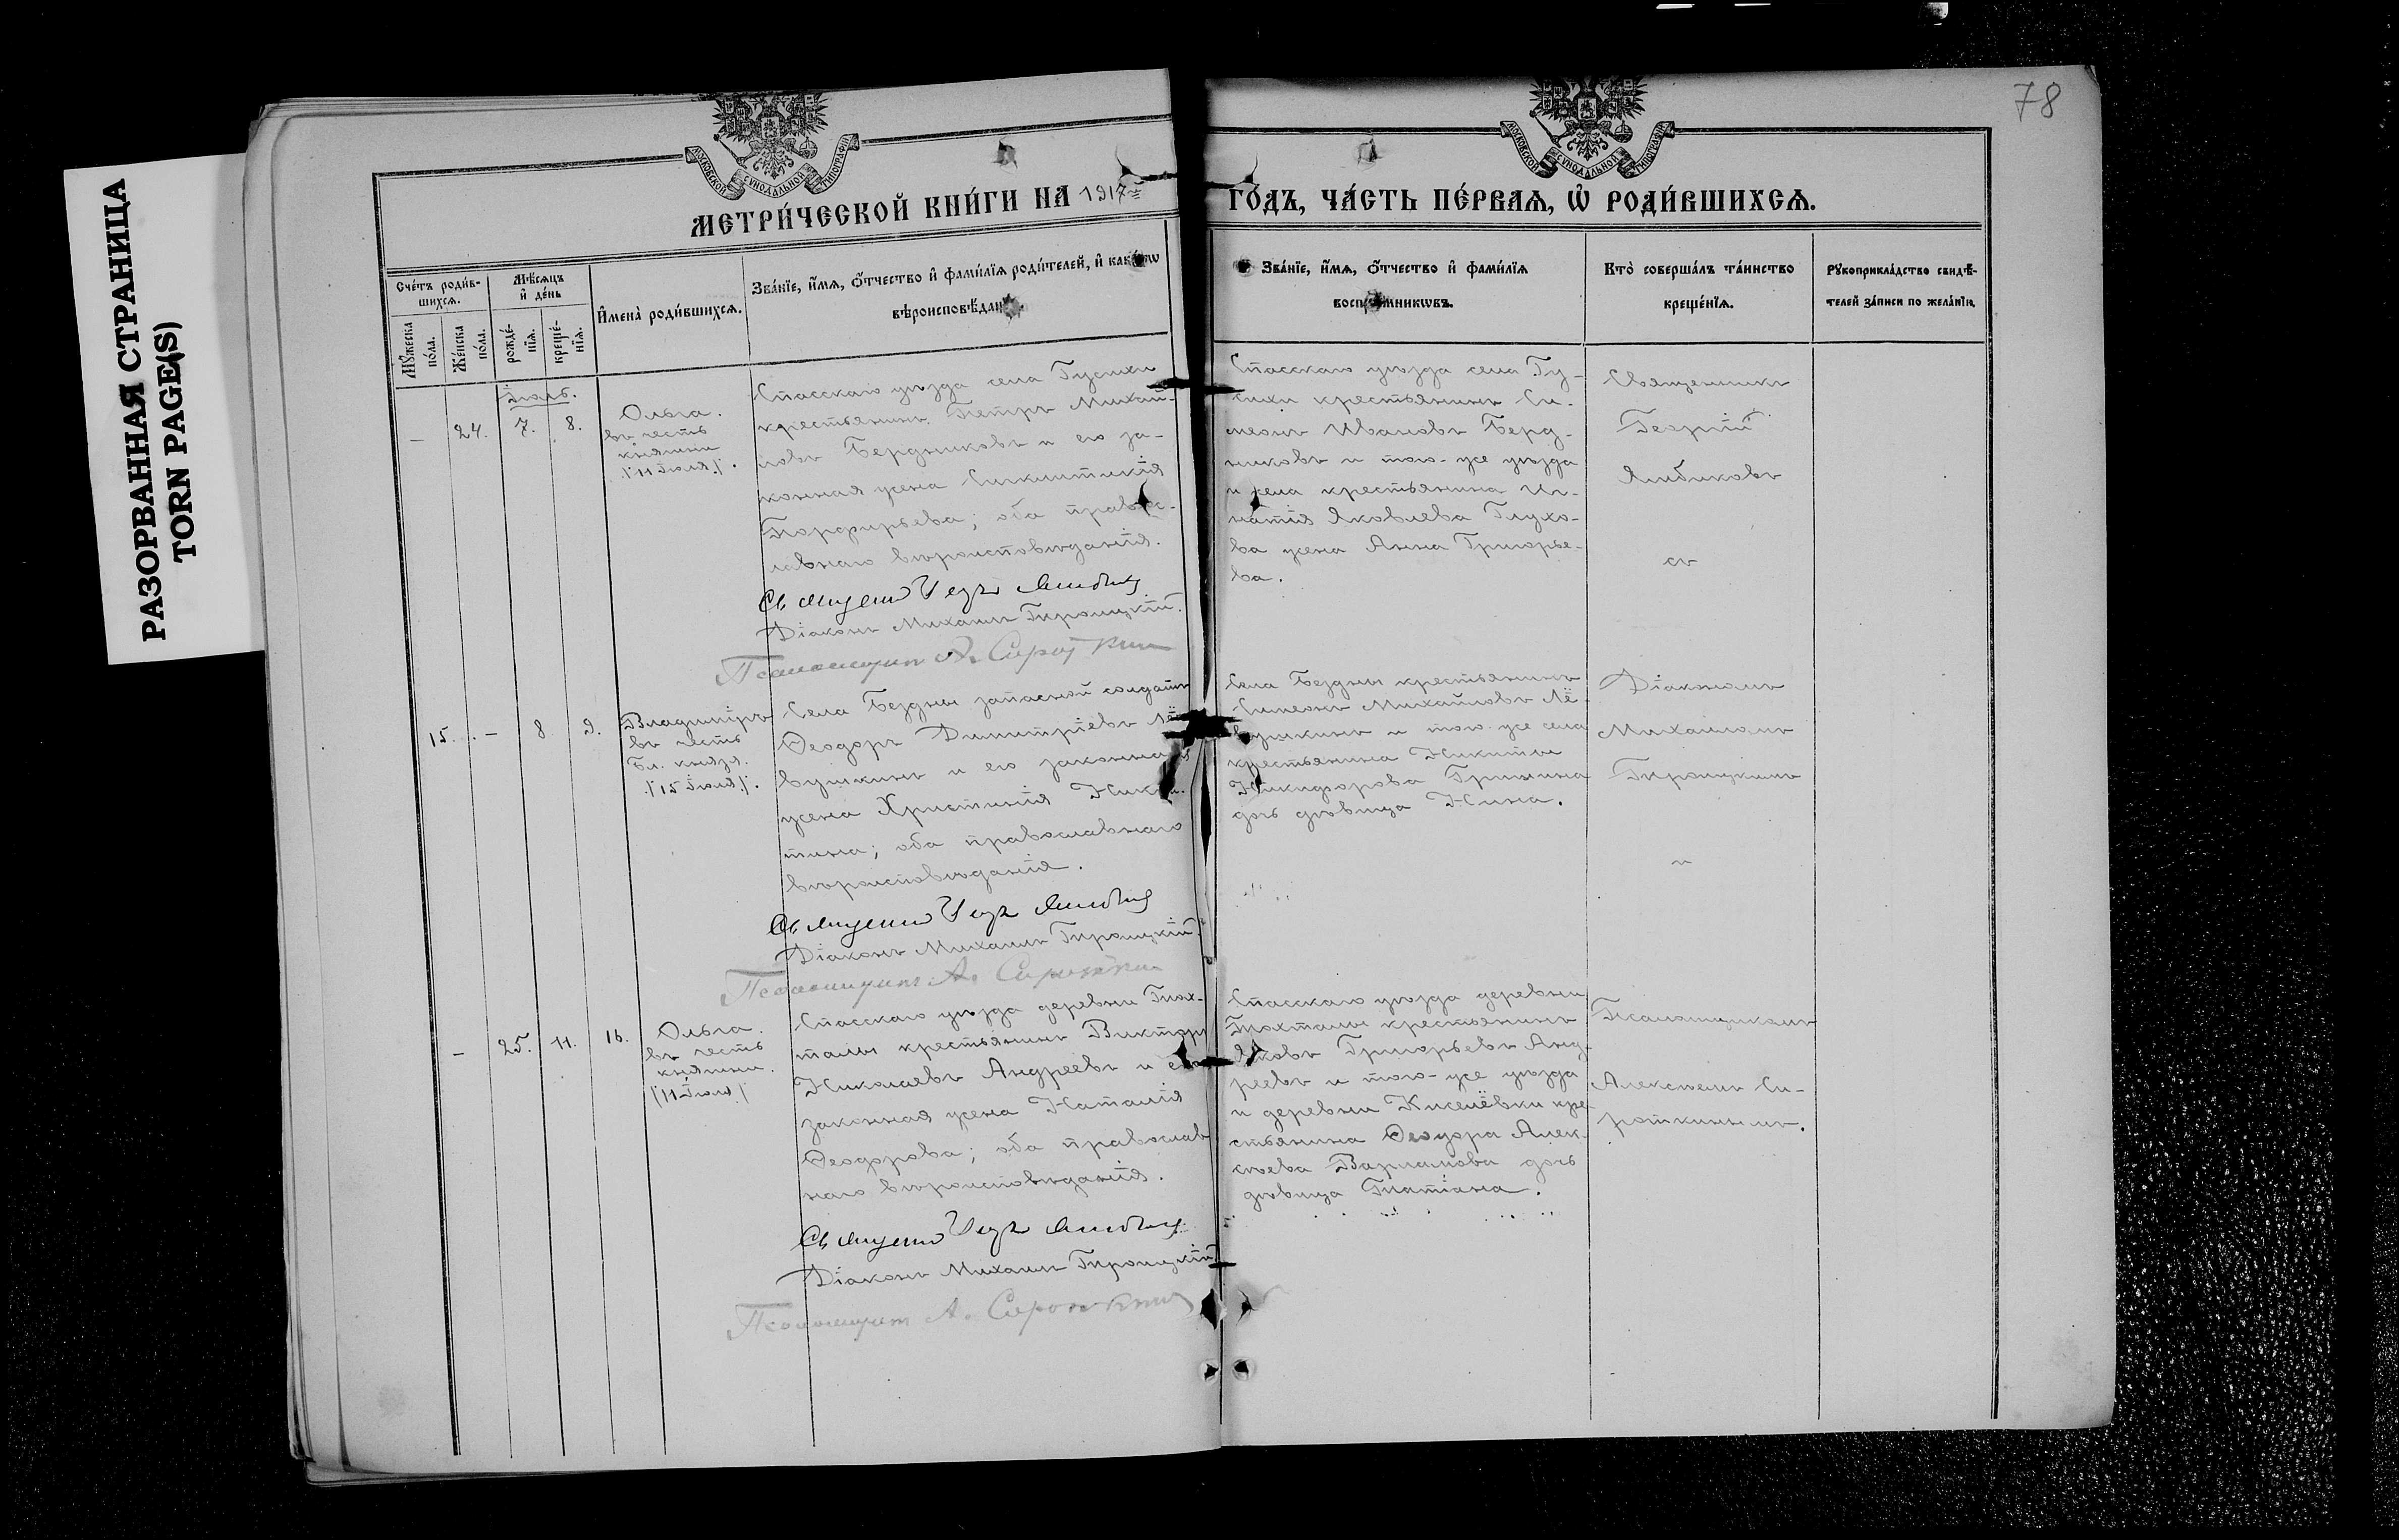 78
РАЗОРВАННАЯ СТРАНИЦА
TORN PAGE(S)
МОСКОВСКОЙ СУНОДАЛЬНОЙ ТИПОГРАФІИ
МОСКОВСКОЙ СУНОДАЛЬНОЙ ТИПОГРАФІИ
МЕТРИ́ЧЕСКОЙ КНИ́ГИ НА 1917
ГО́ДЪ, ЧА́СТЬ ПЕ́РВАЯ, Ѡ҆ РОДИ́ВШИХСЯ.
Сче́тъ роди́в-
шихся.
Мѣ́сяцъ
и҆ де́нь
Мꙋ́жеска
по́ла.
Же́нска
по́ла.
рожде́-
нїя.
креще́-
нїя.
И҆мена̀ роди́вшихся.
Зва́нїе, и҆́мя, ѻ҆́тчество и҆ фами́лїя роди́телей, и҆
вѣроисповѣ́данїя
Зва́нїе, и҆́мя, ѻ҆́тчество и҆ фами́лїя
воспрїе́мникѡвъ.
Кто̀ соверша́лъ та́инство
креще́нїя.
Рꙋкоприкла́дство свидѣ́-
телей за́писи по жела́нїю.
Іюль.
— 24. 7. 8.
Ольга.
въ честь
княгини
/11 Іюля/.
Спасскаго уѣзда села Гусихи
крестьянинъ Петръ Михай-
ловъ Бердниковъ и его за-
конная жена Синклитикія
Порфирьева; оба правос-
лавнаго вѣроисповѣданія.
Діаконъ Михаилъ Троицкій.
Псаломщикъ А. Сироткин
Спасскаго уѣзда села Гу-
сихи крестьянинъ Си-
меонъ Ивановъ Берд-
никовъ и того-же уѣзда
и села крестьянина Иг-
натія Яковлева Глухо-
ва жена Анна Григорье-
ва.
Священникъ
Георгій
Ямбиковъ
съ
15. — 8 9.
Владиміръ
въ честь
Бл. князя.
/15 Іюля/.
Села Бездны запасной солдатъ
Ѳеодоръ Димитріевъ Лё-
вушкинъ и его законная
жена Христинія Ники-
тина; оба православнаго
вѣроисповѣданія.
Діаконъ Михаилъ Троицкій.
Псаломщикъ А. Сироткин
Села Бездны крестьянинъ
Симеонъ Михайловъ Лё-
вушкинъ и того-же села
крестьянина Никиты
Никифорова Гришина
дочь дѣвица Нина.
Діакономъ
Михаиломъ
Троицкимъ
и
— 25. 11. 16.
Ольга.
въ честь
княгини.
/11 Іюля/
Спасскаго уѣзда деревни Тюх-
талы крестьянинъ Викторъ
Николаевъ Андреевъ и его
законная жена Наталія
Ѳеодорова; оба православ-
наго вѣроисповѣданія.
Діаконъ Михаилъ Троицкій
Псаломщикъ А. Сироткин
Спасскаго уѣзда деревни
Тюхталы крестьянинъ
Яковъ Григорьевъ Анд-
реевъ и того-же уѣзда
и деревни Киселёвки кре-
стьянина Ѳеодора Алек-
сѣева Варламова дочь
дѣвица Татіана.
Псаломщикомъ
Алексѣемъ Си-
роткинымъ.